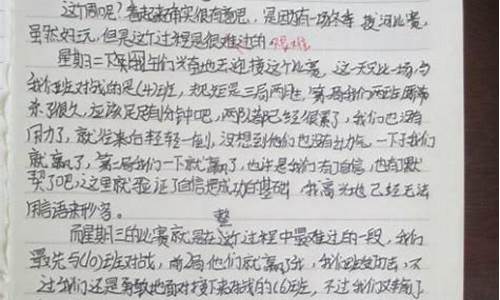 这个周呢?看起来确实很有意吧,是因为有一场冬季拔河比赛,
虽然好玩,但是这个过程是很难过的 艰难
星期二下午同学们兴奋地去迎接这个比赛,这一天只比一场,与
我们班对战的是(4)班,规矩是三局两胜,第一局我们两班
来了很久,应该足足有1分钟吧,两队都已经很累了,我们也没有
用力了,就往来自轻轻一倒,没想到他们也没有出力气,一下子我们
就赢了,第二局我们一下就赢了,也许是我们有了自信,也有默
契了吧,这里就验证了自信把成功的基础,我高兴地已经无法
用言语来形容。
整
而星期三的比赛就是在这个过程中最难过的一段,我们
最先与(10)班对战,前2局他们就赢了我,我们,不
过我们还是勇敢地面对接下来对战的(6)班,不过我们又输了